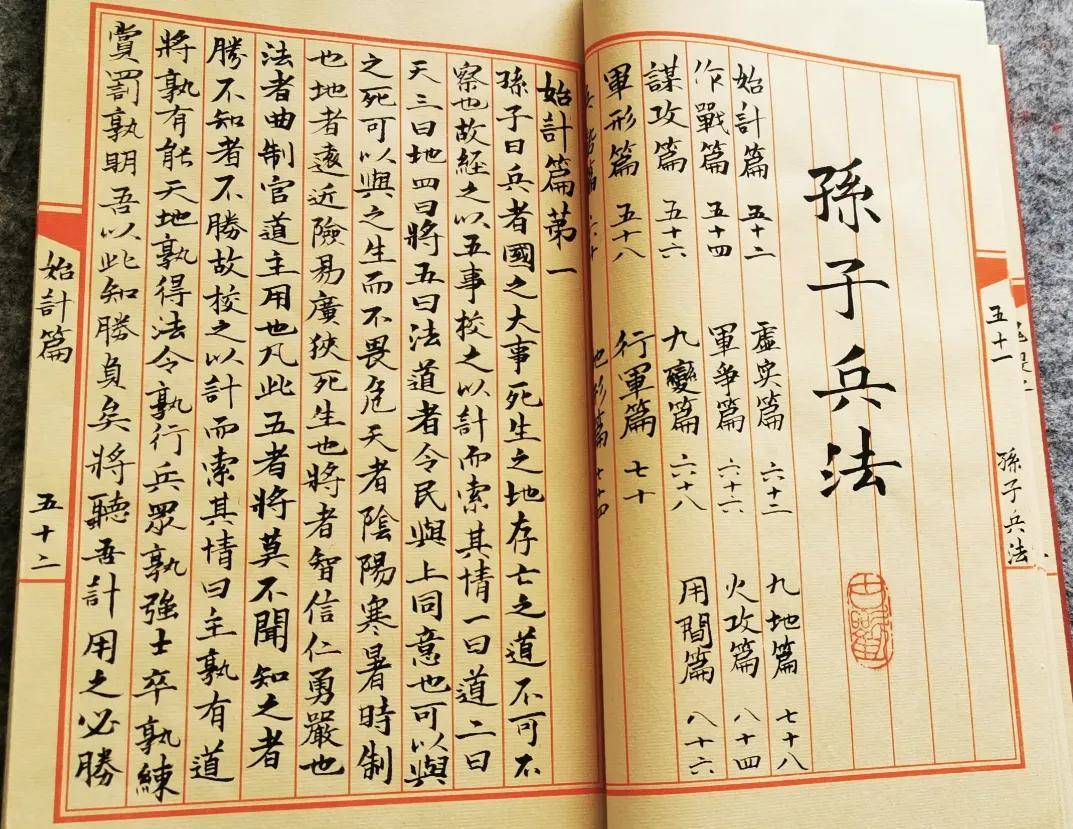 五十一
孫子兵法
孫子兵法
始計篇 五十二
作戰篇 五十四
謀攻篇 五十六
軍形篇 五十八
虛实篇 六十二
軍爭篇 六十六
九變篇 六十八
行軍篇 七十
地形篇 七十四
九地篇 七十八
火攻篇 八十四
用間篇 八十六
始計篇第一
孫子曰兵者國之大事死生之地存亡之道不可不
察也故經之以五事校之以計而索其情一曰道二曰
天三曰地四曰將五曰法道者令民與上同意也可以與
之死可以與之生而不畏危天者陰陽寒暑時制
也地者遠近險易廣狹死生也將者智信仁勇嚴也
法者曲制官道主用也凡此五者將莫不聞知之者
勝不知者不勝故校之以計而索其情曰主孰有道
將孰有能天地孰得法令孰行兵眾孰強士卒孰練
賞罰孰明吾以此知勝負矣將聽吾計用之必勝
始計篇
五十二